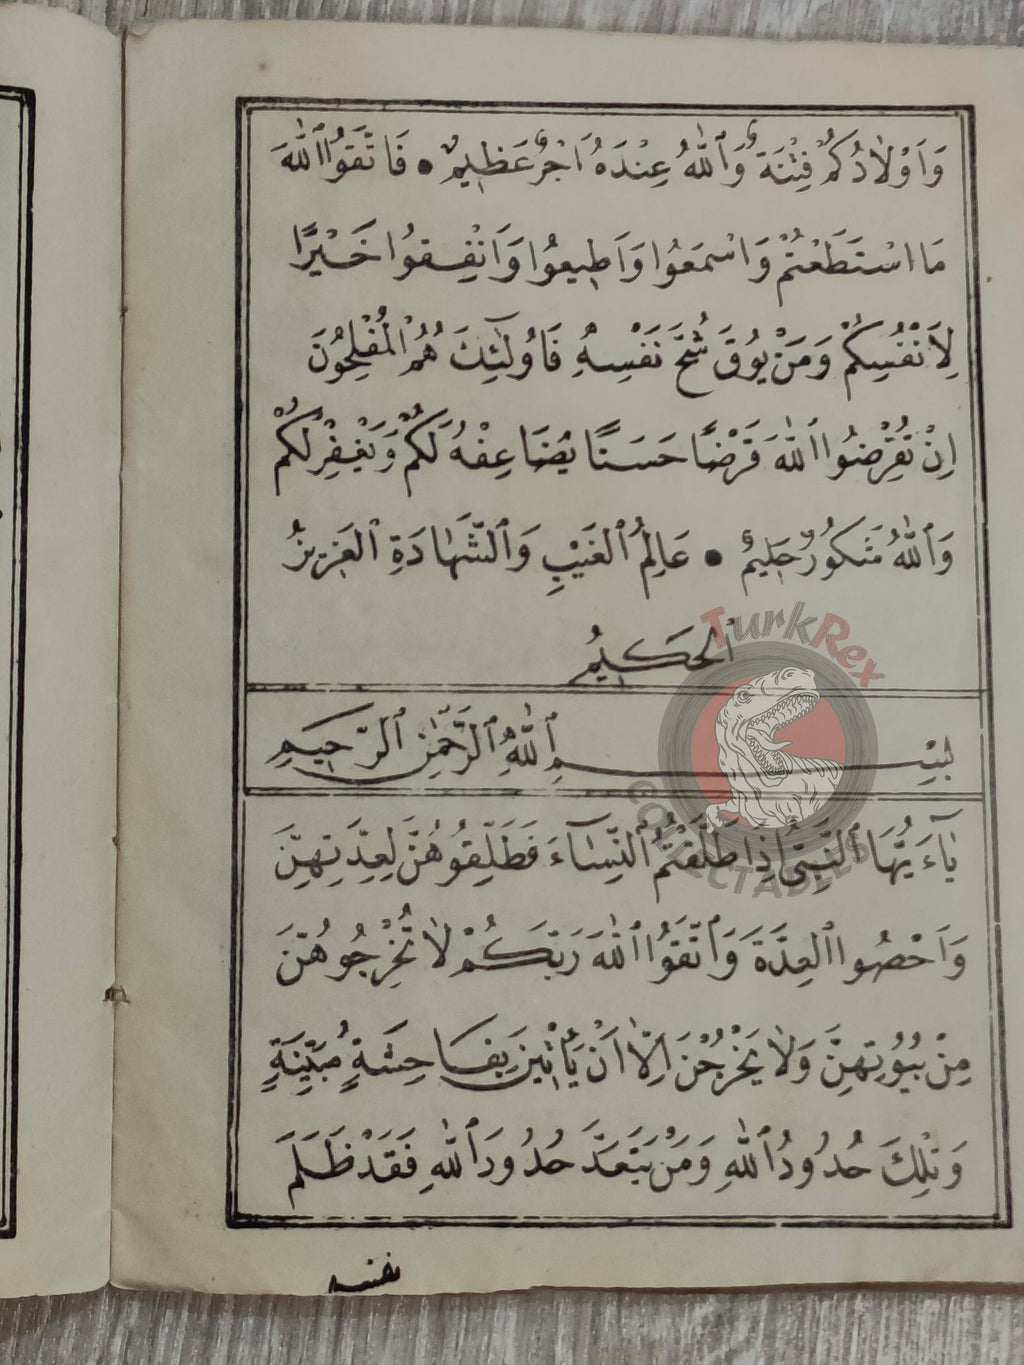 وَاَوْلَادُكُمْ فِتْنَةٌ وَٱللّٰهُ عِنْدَهُ اَجْرٌ عَظِيمٌ • فَاتَّقُوا ٱللّٰهَ
مَا اسْتَطَعْتُمْ وَاسْمَعُوا وَاَطِيعُوا وَاَنْفِقُوا خَيْرًا
لِاَنْفُسِكُمْ وَمَنْ يُوقَ شُحَّ نَفْسِهِ فَاُولٰٓئِكَ هُمُ الْمُفْلِحُونَ
اِنْ تُقْرِضُوا ٱللّٰهَ قَرْضًا حَسَنًا يُضَاعِفْهُ لَكُمْ وَيَغْفِرْ لَكُمْ
وَٱللّٰهُ شَكُورٌ حَلِيمٌ • عَالِمُ ٱلْغَيْبِ وَٱلشَّهَادَةِ ٱلْعَزِيزُ
ٱلْحَكِيمُ
بِسْمِ ٱللّٰهِ ٱلرَّحْمٰنِ ٱلرَّحِيمِ
يَآءَيُّهَا ٱلنَّبِىُّ اِذَا طَلَّقْتُمُ ٱلنِّسَآءَ فَطَلِّقُوهُنَّ لِعِدَّتِهِنَّ
وَاَحْصُوا ٱلْعِدَّةَ وَٱتَّقُوا ٱللّٰهَ رَبَّكُمْ لَا تُخْرِجُوهُنَّ
مِنْ بُيُوتِهِنَّ وَلَا يَخْرُجْنَ اِلَّا اَنْ يَأْتِينَ بِفَاحِشَةٍ مُبَيِّنَةٍ
وَتِلْكَ حُدُودُ ٱللّٰهِ وَمَنْ يَتَعَدَّ حُدُودَ ٱللّٰهِ فَقَدْ ظَلَمَ
نفسه
TurkRex
COLLECTABLES